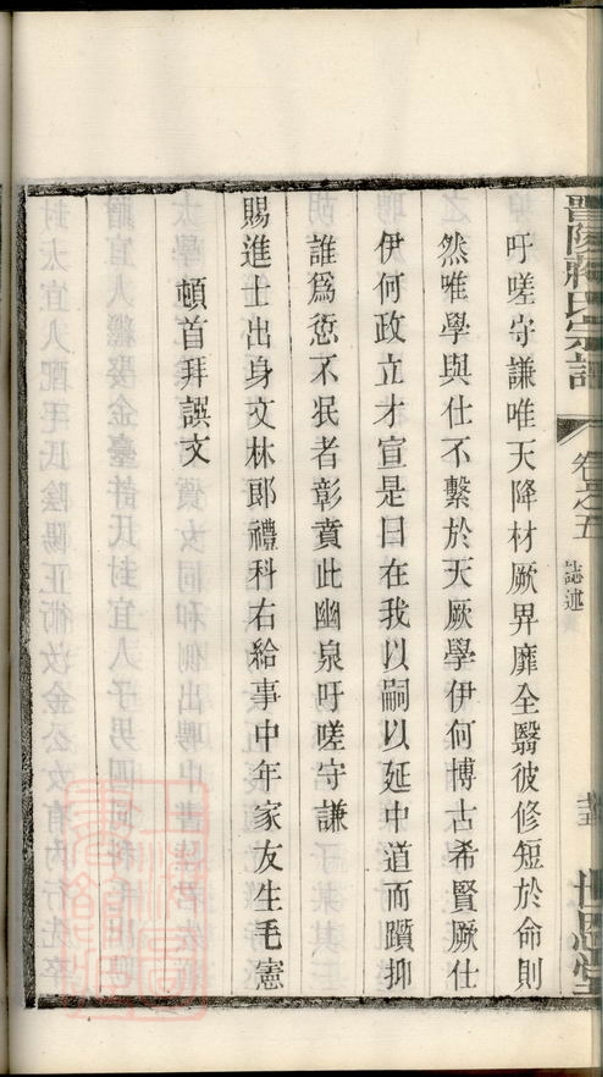 晉陵蔣氏宗譜 卷之五 誌述 世恩堂
吁嗟守謙唯天降材厥畀靡全翳彼修短於命則
然唯學與仕不繫於天厥學伊何博古希賢厥仕
伊何政立才宣是曰在我以嗣以延中道而躓抑
誰爲愆不泯者彰賁此幽泉吁嗟守謙
賜進士出身文林郎禮科右給事中年家友生毛憲
頓首拜譔文